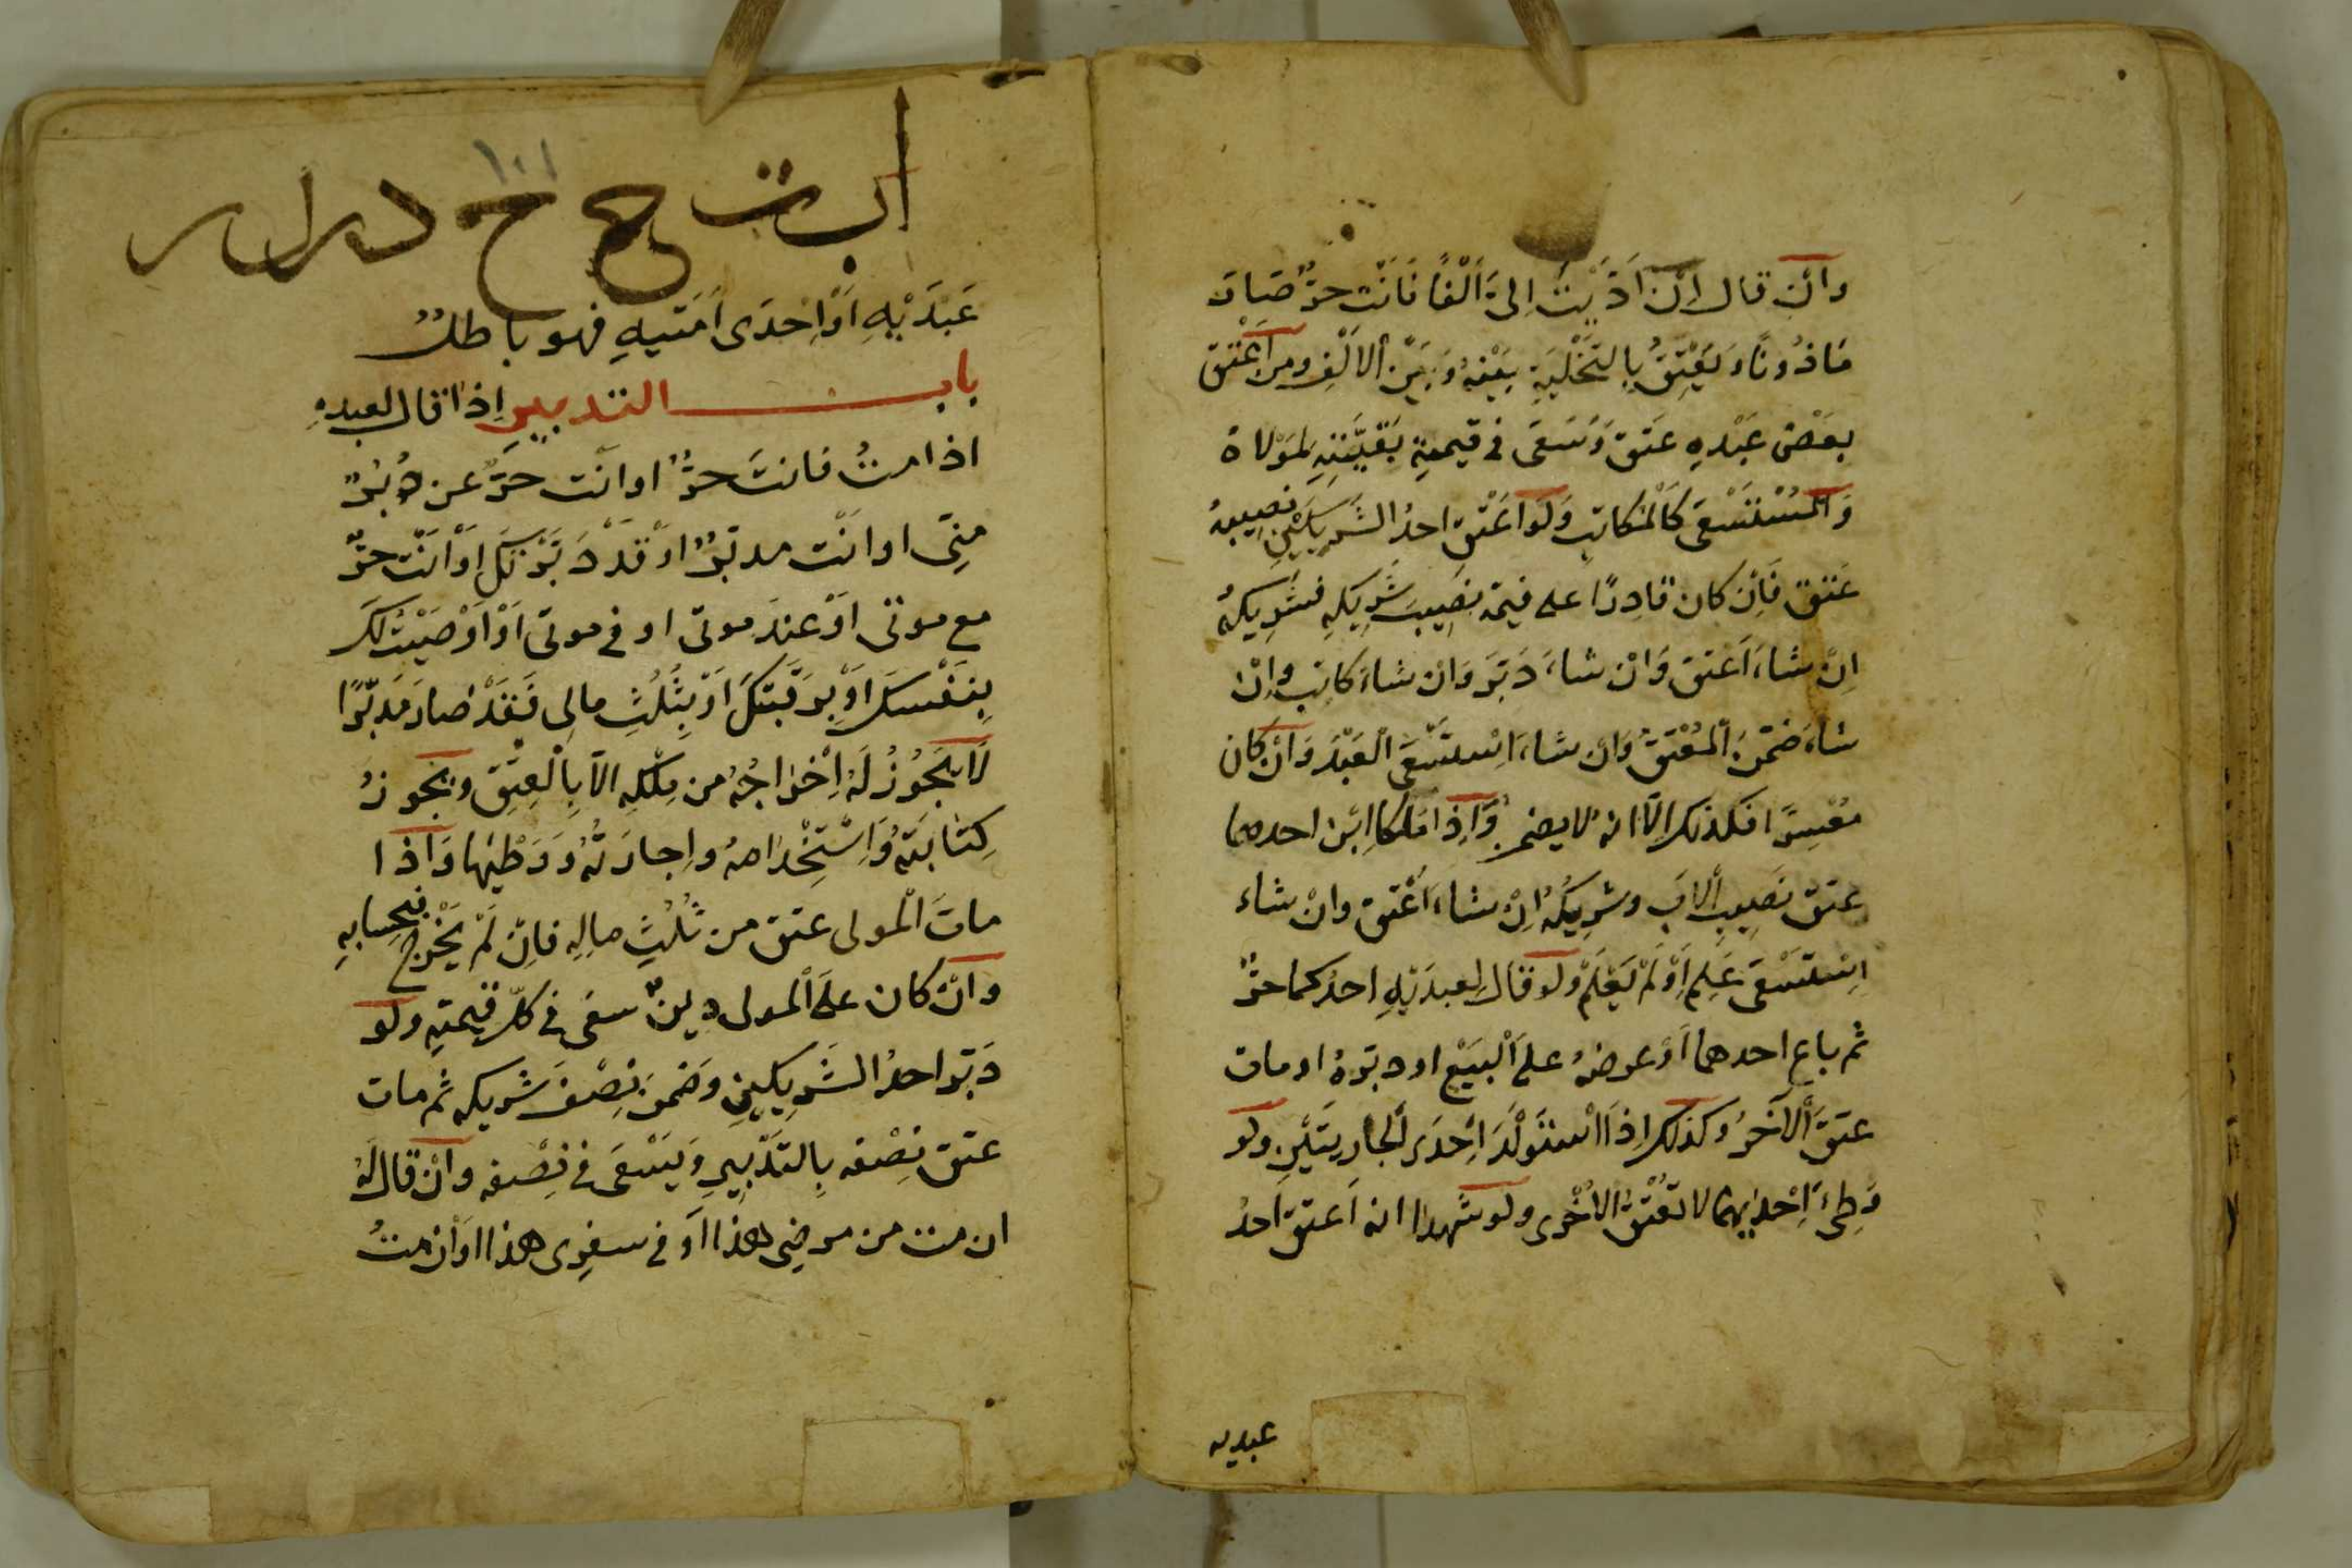 وان قال ان اَدَّيْتَ اِلَىَّ اَلْفًا فَاَنْت حرٌّ صَارَ
مَاذُونًا وَيَعْتِقُ بِالتَّخْلِيَةِ بَيْنَهُ وَبَيْنَ الاَلْفِ ومن اَعْتَقَ
بعَضَ عَبْدِهِ عَتَقَ وَسَعَى فى قيمةِ بَقِيَّتِهِ لمَوْلاهُ
وَالمُسْتَسْعَى كَالمُكاتَبِ وَلَوْ اَعْتَقَ احدُ الشَّرِيكَيْنِ نصيبهُ
عَتَقَ فَاِنْ كان قادِرًا على قيمة نصِيبَ شَرِيكِهِ فشَرِيكهُ
اِنْ شاءَ اَعْتَقَ وَانْ شاءَ دَبَّرَ وَان شاءَ كاتَبَ واِنْ
شاءَ ضمَّنَ المُعْتِقَ وَان شاءَ اسْتَسْعَى العَبْدَ وَانْ كان
مُعْسِرًا فكذلك الاَّ انهُ لا يضمن وَاِذا مَلكا ابْنَ احدهما
عتق نَصِيبُ الاَبِ وشريكُهُ اِنْ شاءَ اَعْتق وانْ شاء
اِسْتَسْعَى عَلِمَ اَوْ لَمْ يَعْلَمْ ولو قال لِعبدَيْهِ احدُكما حرٌّ
ثم باع احدهما اَوْ عرضهُ على البيَعْ او دبّرهُ او مات
عتقَ الآخَرُ وكذلك اِذا اسْتَوْلَدَ اِحْدَى الجارِيتَيْنِ ولو
وَطِئَ اِحْدَيهما لا تعْتقُ الاُخْرى ولو شَهِدا انه اَعتقَ احدُ
عبديه
ا ب ت ج ح د ر ل ر
١٠١
عَبدَيْهِ اَوْ اِحْدَى اَمَتَيهِ فهو باطلٌ
باب التدبيرِ اِذا قال لعبدهِ
اذا متُّ فانتَ حرٌّ او انْت حرٌّ عن دُبُرٍ
مِنّى او انْت مدبَّرٌ اوْ قَدْ دَبَّرْتكَ اوْ اَنْت حرٌّ
مع موتى اَوْ عِندَ موتى او فى موتى اَوْ اَوْصَيْتُ لَكَ
بِنَفْسِكَ اَوْ بِرَقَبَتِكَ اَوْ بِثُلُثِ مالى فَقَدْ صارَ مُدَبَّرًا
لَا يَجُوزُ لَهُ اِخْراجُهُ من مِلْكِهِ الاّ بِالْعِتْقِ ويَجُوزُ
كِتابَتهُ وَاسْتِخْدامهُ واِجارَتُهُ وَوَطْئها وَاذا
ماتَ الْمولى عتق من ثُلُثِ مالِهِ فاِنْ لَمْ يَخْرُج فبحسابهِ
وانْ كان على المولى دينٌ سعَى فى كلّ قيمتِهِ ولو
دَبّر احدُ الشَّرِيكينِ وضَمن نِصْفَ شريكه ثم مات
عتق نِصْفه بِالتدْبيرِ وَيَسْعَى فى نِصْفه وانْ قال لهُ
ان مت من مرضِى هذا اَوْ فى سفرِى هذا اوْ ان متُّ